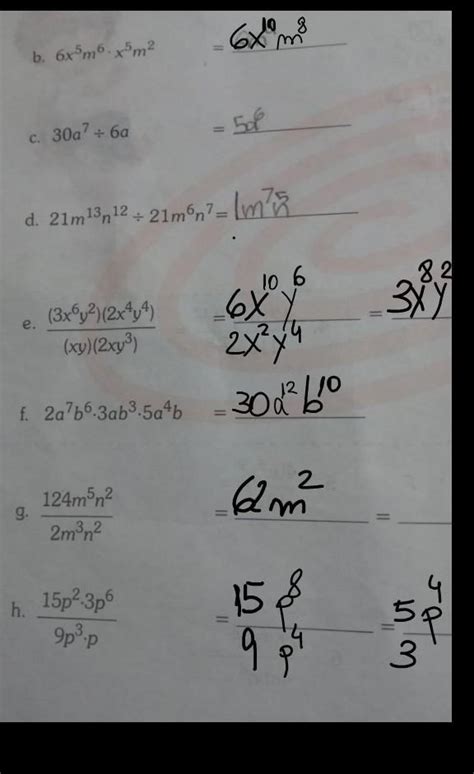 b. 6x⁵m⁶ · x⁵m² = 6x¹⁰m⁸
c. 30a⁷ ÷ 6a = 5a⁶
d. 21m¹³n¹² ÷ 21m⁶n⁷ = 1m⁷n⁵
e. (3x⁶y²)(2x⁴y⁴) / (xy)(2xy³) = 6x¹⁰y⁶ / 2x²y⁴ = 3x⁸y²
f. 2a⁷b⁶·3ab³·5a⁴b = 30a¹²b¹⁰
g. 124m⁵n² / 2m³n² = 62m² =
h. 15p²·3p⁶ / 9p³·p = 15p⁸ / 9p⁴ = 5p⁴ / 3